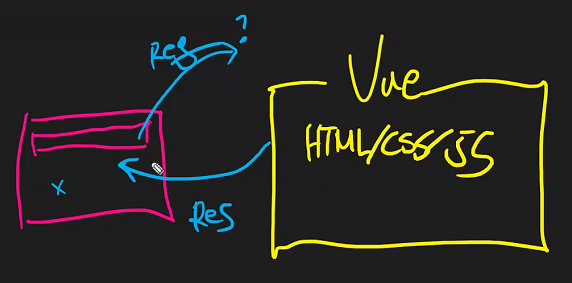 ?
Req
Vue
HTML/CSS/JS
x
Res